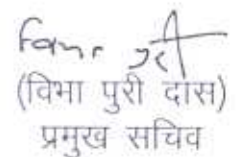 (विभा पुरी दास)
प्रमुख सचिव